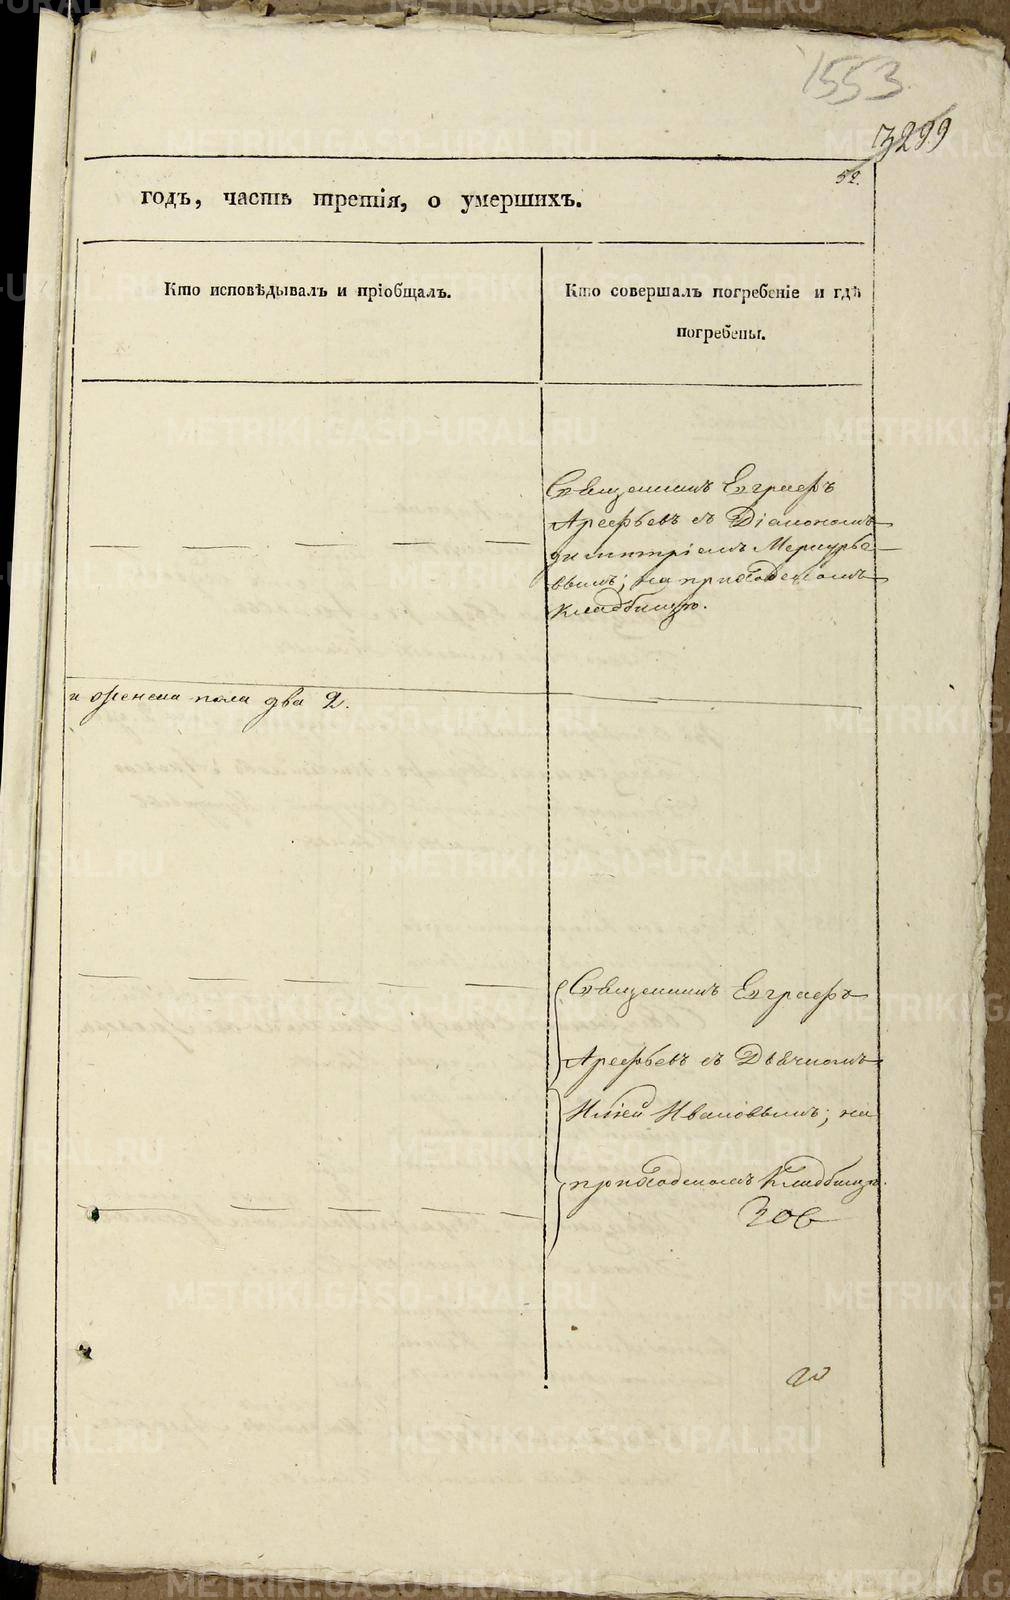 1553
3299
52.
годъ, часть третія, о умершихъ.
Кто исповѣдывалъ и пріобщалъ.
Кто совершалъ погребеніе и гдѣ
погребены.
Священникъ Евграфъ
Арефьевъ съ Діакономъ
Димитріемъ Меркурье-
вымъ; на приходскомъ
кладбищѣ.
и женска пола два 2.
Священникъ Евграфъ
Арефьевъ съ Дьячкомъ
Иліей Ивановымъ; на
приходскомъ кладбищѣ.
METRIKI.GASO-URAL.RU